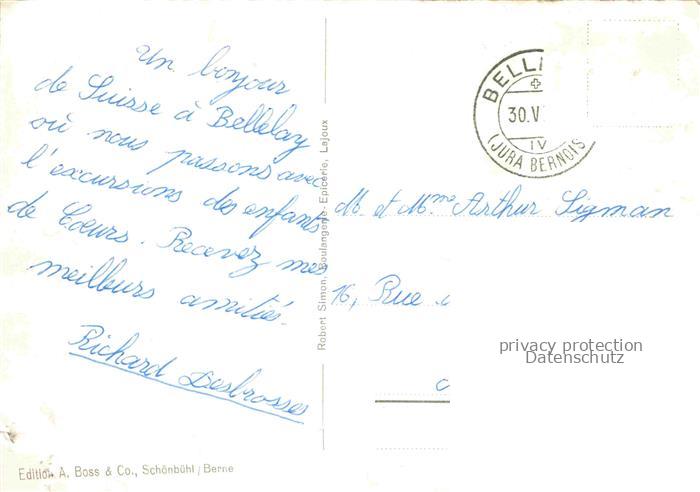 Un bonjour
de Suisse à Bellelay
où nous passons avec
l'excursions des enfants
de Coeurs. Recevez mes
meilleurs amitiés.
Richard Desbrosses
Edition A. Boss & Co., Schönbühl / Berne
Robert Simon, Boulangerie-Epicerie, Lajoux
BELL
30.V
IV
(JURA BERNOIS
M. et Mme Arthur Sigman
16, Rue
privacy protection
Datenschutz